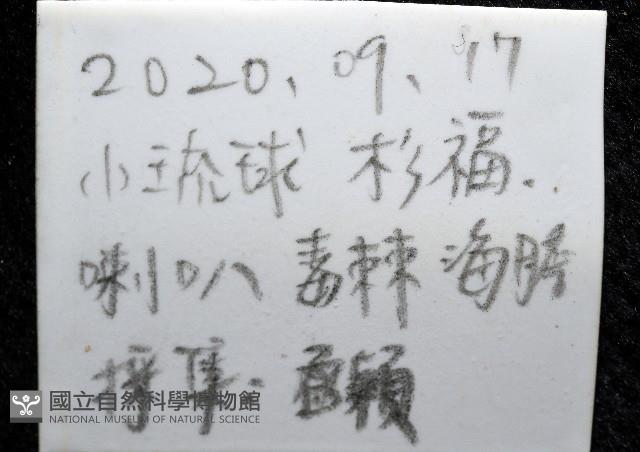 2020、09、17
小琉球 杉福.
喇叭 毒棘 海胆
採集.
國立自然科學博物館
NATIONAL MUSEUM OF NATURAL SCIENCE